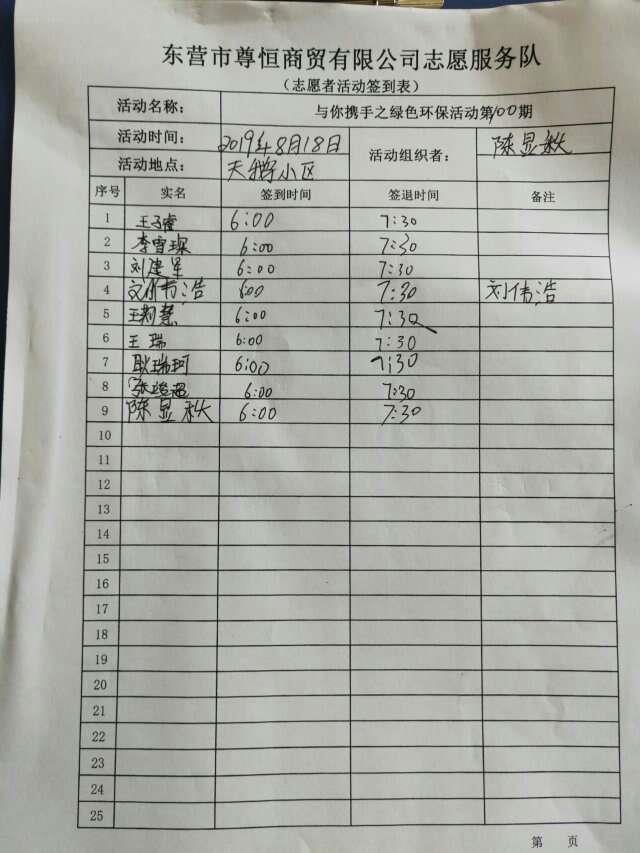 东营市尊恒商贸有限公司志愿服务队
（志愿者活动签到表）
活动名称： 与你携手之绿色环保活动第100期
活动时间： 2019年8月18日 活动组织者： 陈显秋
活动地点： 天鹅小区
序号 实名 签到时间 签退时间 备注
1 王子睿 6:00 7:30
2 李雪琛 6:00 7:30
3 刘建军 6:00 7:30
4 刘伟浩 6:00 7:30 刘伟浩
5 王莉慧 6:00 7:30
6 王瑞 6:00 7:30
7 耿瑞珂 6:00 7:30
8 6:00 7:30
9 陈显秋 6:00 7:30
10
11
12
13
14
15
16
17
18
19
20
21
22
23
24
25
第 页